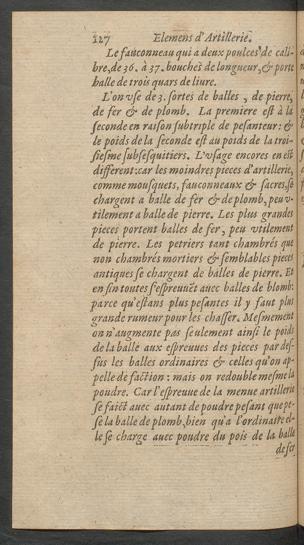 127 Elemens d'Artillerie.
Le fauconneau qui a deux poulces de cali-
bre, de 36. à 37. bouches de longueur, & porte
balle de trois quars de liure.
L'on vse de 3. sortes de balles, de pierre,
de fer & de plomb. La premiere est à la
seconde en raison subtriple de pesanteur: &
le poids de la seconde est au poids de la troi-
siesme subsesquitiers. L'vsage encores en est
different: car les moindres pieces d'artillerie,
comme mousquets, fauconneaux & sacres, se
chargent a balle de fer & de plomb, peu v-
tilement a balle de pierre. Les plus grandes
pieces portent balles de fer, peu vtilement
de pierre. Les petriers tant chambrés que
non chambrés mortiers & semblables pieces
antiques se chargent de balles de pierre. Et
en fin toutes s'espreuuēt auec balles de blomb:
parce qu'estans plus pesantes il y faut plus
grande rumeur pour les chasser. Mesmement
on n'augmente pas seulement ainsi le poids
de la balle aux espreuues des pieces par des-
sus les balles ordinaires & celles qu'on ap-
pelle de faction: mais on redouble mesme la
poudre. Car l'espreuue de la menue artillerie
se faict auec autant de poudre pesant que pe-
se la balle de plomb, bien qu'a l'ordinaire el-
le se charge auec poudre du pois de la balle
de fer